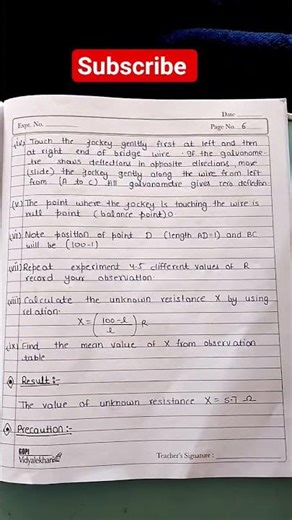 Subscribe
Date
Expt. No.
Page No. 6
(iv) Touch the jockey gently first at left and then
at right end of bridge wire . If the galvanome-
tre shows deflections in opposite directions, move
(slide) the jockey gently along the wire from left
from (A to C). All galvanometre gives zero
(v) The point where the jockey is touching the wire is
null point (balance point)
(vi) Note position of point D (length AD=l) and BC
will be (100-l)
(vii) Repeat experiment 4-5 different values of R
record your observation.
(viii) Calculate the unknown resistance X by using
relation.
X = (100-l / l) R
(ix) Find the mean value of X from observation
table
Result :-
The value of unknown resistance X = 5.7 Ω
Precaution :-
GOPI
Vidyalekhan
Teacher's Signature :